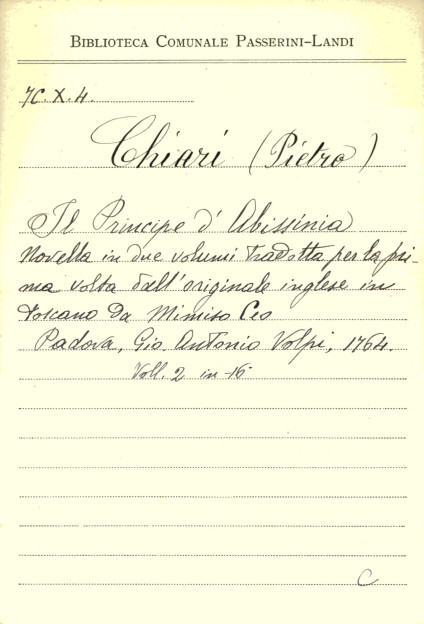 BIBLIOTECA COMUNALE PASSERINI-LANDI
7C.X.4.
Chiari (Pietro)
Il Principe d'Abissinia
Novella in due volumi tradotta per la pri-
ma volta dall'originale inglese in
toscano da Mimiso Ceo
Padova, Gio. Antonio Volpi, 1764.
Voll. 2 in-16
C